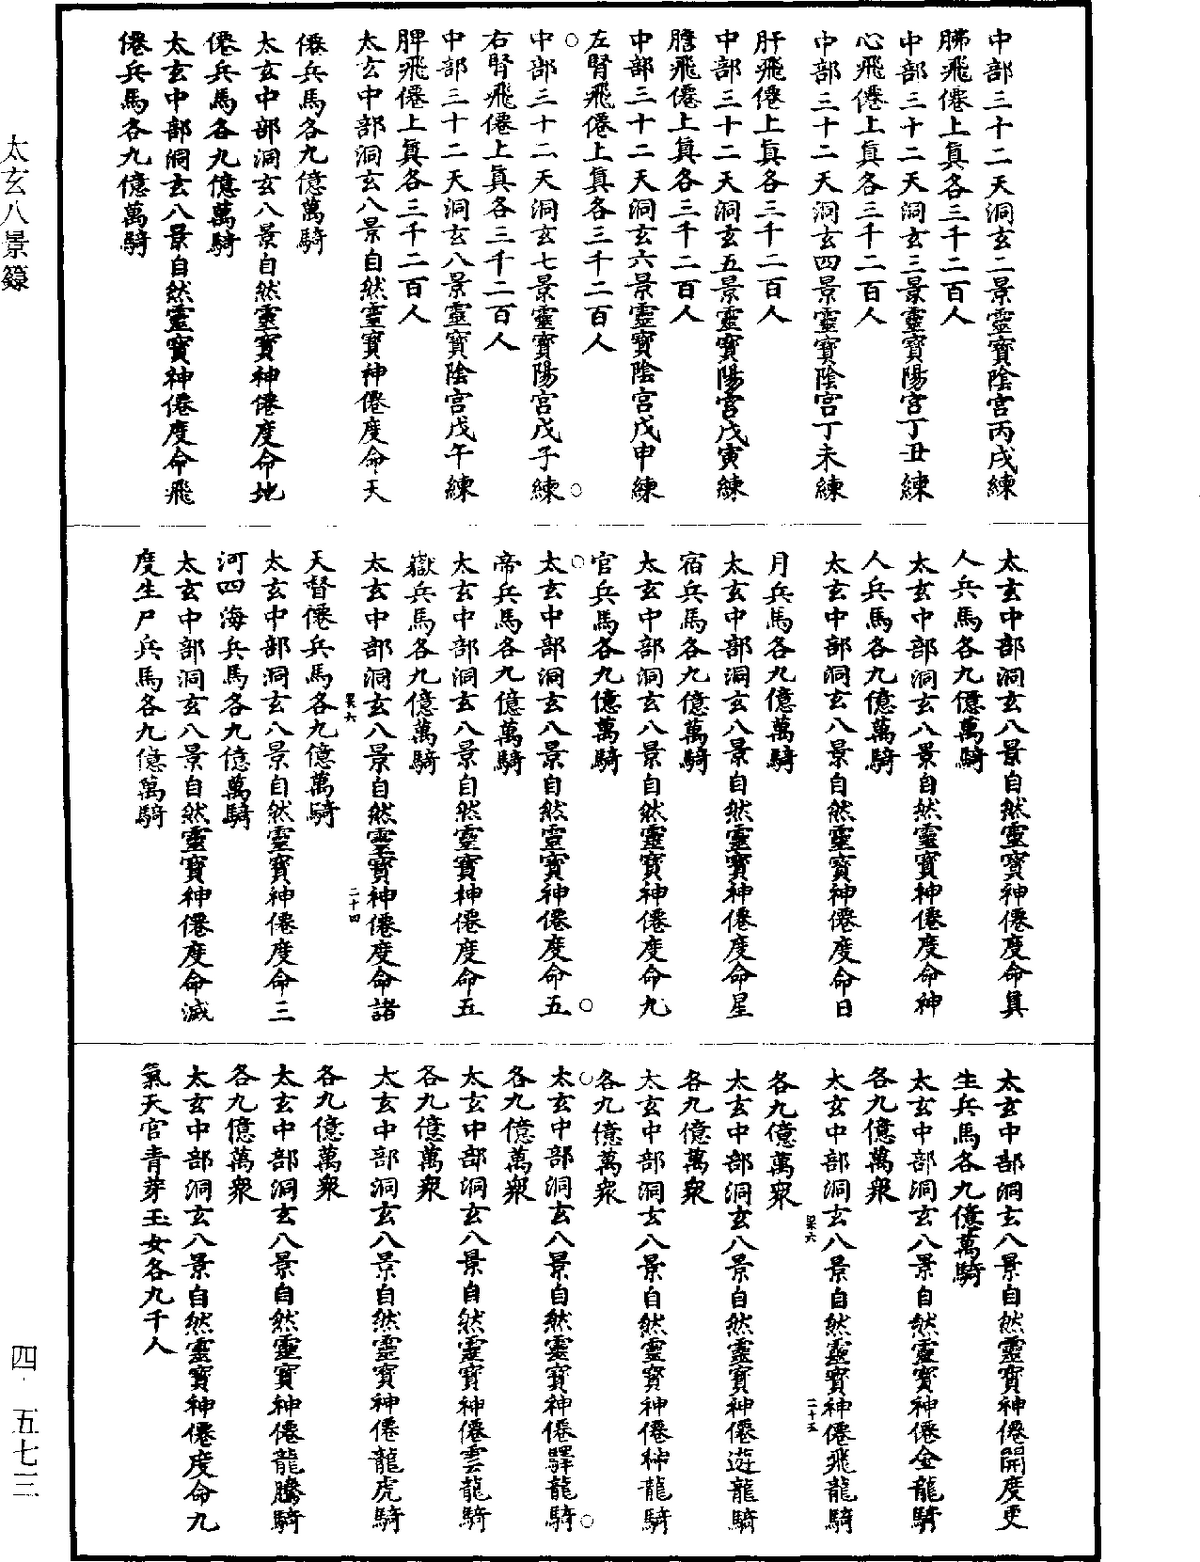 中部三十二天洞玄二景靈寶陰宮丙戌練
肺飛僊上真各三千二百人
中部三十二天洞玄三景靈寶陽宮丁丑練
心飛僊上真各三千二百人
中部三十二天洞玄四景靈寶陰宮丁未練
肝飛僊上真各三千二百人
中部三十二天洞玄五景靈寶陽宮戊寅練
膽飛僊上真各三千二百人
中部三十二天洞玄六景靈寶陰宮戊申練
左腎飛僊上真各三千二百人
中部三十二天洞玄七景靈寶陽宮戊子練
右腎飛僊上真各三千二百人
中部三十二天洞玄八景靈寶陰宮戊午練
脾飛僊上真各三千二百人
太玄中部洞玄八景自然靈寶神僊度命天
僊兵馬各九億萬騎
太玄中部洞玄八景自然靈寶神僊度命地
僊兵馬各九億萬騎
太玄中部洞玄八景自然靈寶神僊度命飛
僊兵馬各九億萬騎
太玄中部洞玄八景自然靈寶神僊度命真
人兵馬各九億萬騎
太玄中部洞玄八景自然靈寶神僊度命神
人兵馬各九億萬騎
太玄中部洞玄八景自然靈寶神僊度命日
月兵馬各九億萬騎
太玄中部洞玄八景自然靈寶神僊度命星
宿兵馬各九億萬騎
太玄中部洞玄八景自然靈寶神僊度命九
官兵馬各九億萬騎
太玄中部洞玄八景自然靈寶神僊度命五
帝兵馬各九億萬騎
太玄中部洞玄八景自然靈寶神僊度命五
嶽兵馬各九億萬騎
太玄中部洞玄八景自然靈寶神僊度命諸
二十四
天督僊兵馬各九億萬騎
太玄中部洞玄八景自然靈寶神僊度命三
河四海兵馬各九億萬騎
太玄中部洞玄八景自然靈寶神僊度命滅
度生尸兵馬各九億萬騎
太玄中部洞玄八景自然靈寶神僊開度更
生兵馬各九億萬騎
太玄中部洞玄八景自然靈寶神僊金龍騎
各九億萬衆
太玄中部洞玄八景自然靈寶神僊飛龍騎
二十五
各九億萬衆
太玄中部洞玄八景自然靈寶神僊遊龍騎
各九億萬衆
太玄中部洞玄八景自然靈寶神僊神龍騎
各九億萬衆
太玄中部洞玄八景自然靈寶神僊驛龍騎
各九億萬衆
太玄中部洞玄八景自然靈寶神僊雲龍騎
各九億萬衆
太玄中部洞玄八景自然靈寶神僊龍虎騎
各九億萬衆
太玄中部洞玄八景自然靈寶神僊龍騰騎
各九億萬衆
太玄中部洞玄八景自然靈寶神僊度命九
氣天官青芽玉女各九千人
太玄八景籙
四·五七三